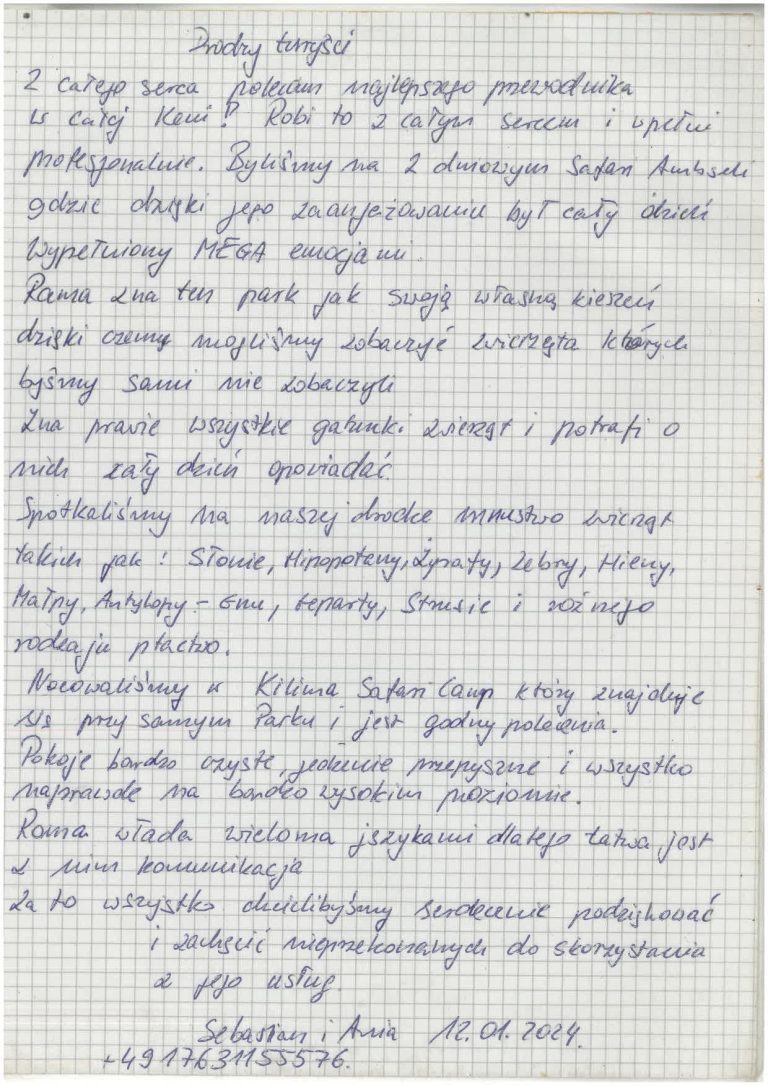 Drodzy turyści
Z całego serca polecam najlepszego przewodnika
w całej Keni! Robi to z całym sercem i w pełni
profesjonalnie. Byliśmy na 2 dniowym Safari Ambseli
gdzie dzięki jego zaangeżowaniu był cały dzień
wypełniony MEGA emocjami.
Rama zna ten park jak swoją własną kieszeń
dzięki czemu mogliśmy zobaczyć zwierzęta których
byśmy sami nie zobaczyli
Zna prawie wszystkie gatunki zwierząt i potrafi o
nich cały dzień opowiadać.
Spotkaliśmy na naszej drodze mnustwo zwierząt
takich jak: Słonie, Hipopotamy, Żyrafy, Zebry, Hieny,
Małpy, Antylopy - Gnu, Geparty, Strusie i rożnego
rodzaju ptactwo.
Nocowaliśmy w Kilima Safari Camp który znajduje
się przy samym Parku i jest godny polecenia.
Pokoje bardzo czyste, jedzenie przepyszne i wszystko
naprawde na bardzo wysokim poziomie.
Rama włada wieloma językami dlatego łatwa jest
z nim komunikacja
Za to wszystko chcielibyśmy serdecznie podziękować
i zachęcić nieprzekonanych do skorzystania
z jego usług.
Sebastian i Ania 12.01.2024.
+4917631155576.